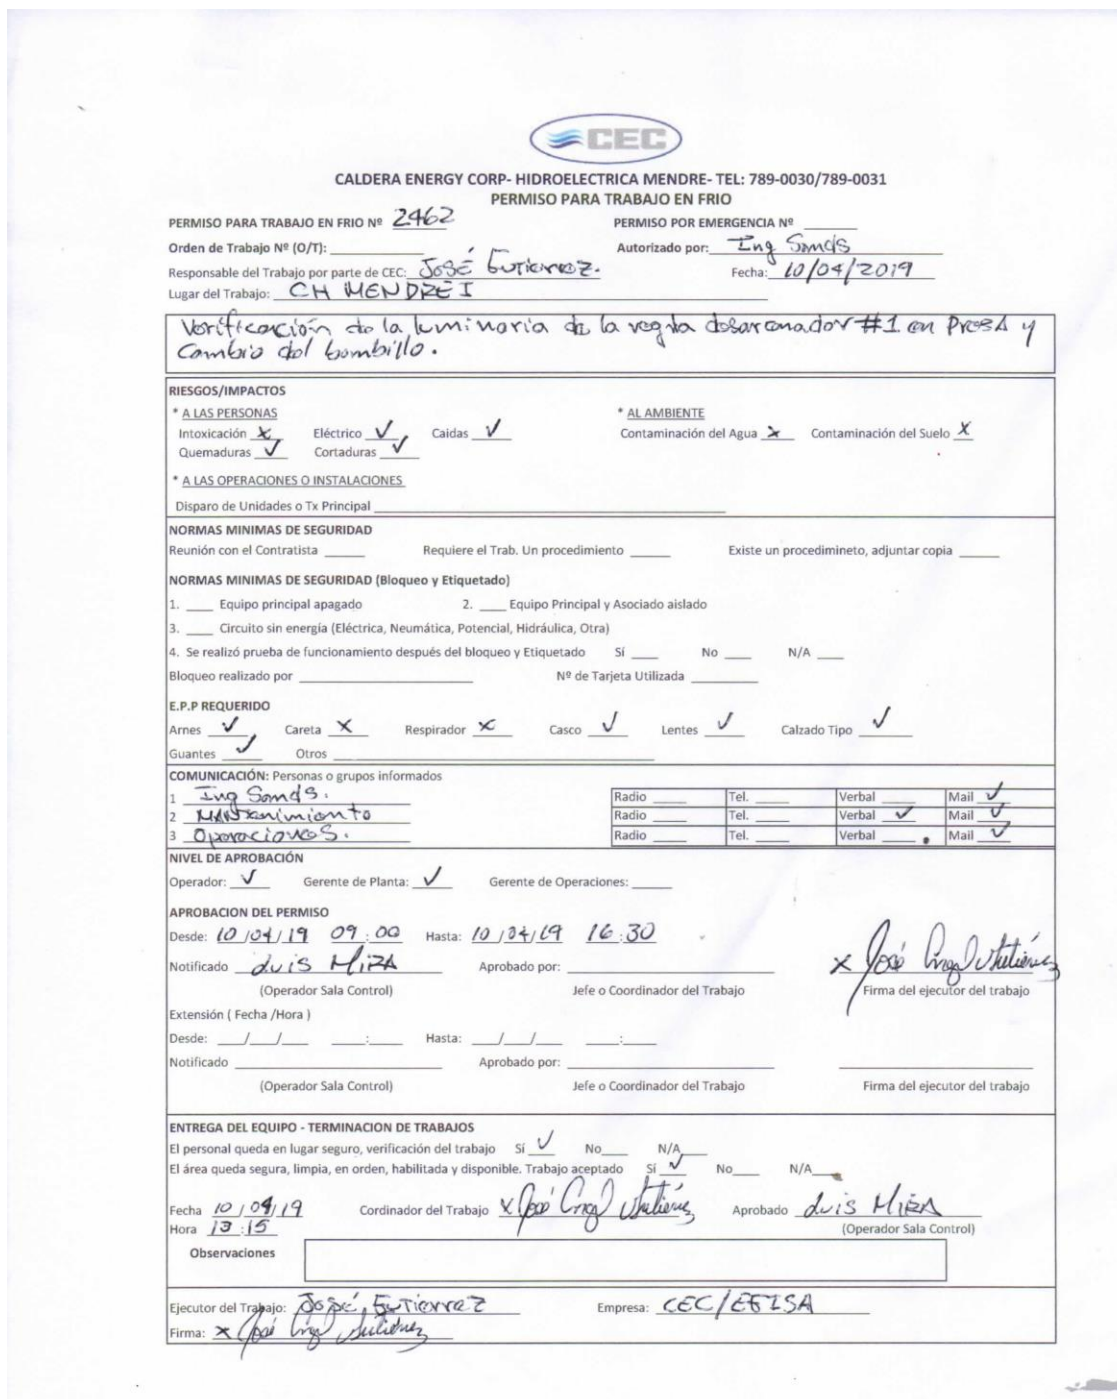 CEC
CALDERA ENERGY CORP- HIDROELECTRICA MENDRE- TEL: 789-0030/789-0031
PERMISO PARA TRABAJO EN FRIO
PERMISO PARA TRABAJO EN FRIO Nº 2462 PERMISO POR EMERGENCIA Nº
Orden de Trabajo Nº (O/T): Autorizado por: Ing
Responsable del Trabajo por parte de CEC: José Gutierrez. Fecha: 10/04/2019
Lugar del Trabajo: CH MENDRE I
Verificación de la luminaria de la regla desarenador #1 en PresA y
Cambio del bombillo.
RIESGOS/IMPACTOS
* A LAS PERSONAS * AL AMBIENTE
Intoxicación X Eléctrico ✓ Caidas ✓ Contaminación del Agua X Contaminación del Suelo X
Quemaduras ✓ Cortaduras ✓
* A LAS OPERACIONES O INSTALACIONES
Disparo de Unidades o Tx Principal
NORMAS MINIMAS DE SEGURIDAD
Reunión con el Contratista Requiere el Trab. Un procedimiento Existe un procedimineto, adjuntar copia
NORMAS MINIMAS DE SEGURIDAD (Bloqueo y Etiquetado)
1. Equipo principal apagado 2. Equipo Principal y Asociado aislado
3. Circuito sin energía (Eléctrica, Neumática, Potencial, Hidráulica, Otra)
4. Se realizó prueba de funcionamiento después del bloqueo y Etiquetado Sí No N/A
Bloqueo realizado por Nº de Tarjeta Utilizada
E.P.P REQUERIDO
Arnes ✓ Careta X Respirador X Casco ✓ Lentes ✓ Calzado Tipo ✓
Guantes ✓ Otros
COMUNICACIÓN: Personas o grupos informados
1 Ing Radio Tel. Verbal Mail ✓
2 Mantenimiento Radio Tel. Verbal ✓ Mail ✓
3 Operaciones. Radio Tel. Verbal Mail ✓
NIVEL DE APROBACIÓN
Operador: ✓ Gerente de Planta: ✓ Gerente de Operaciones:
APROBACION DEL PERMISO
Desde: 10/04/19 09:00 Hasta: 10/04/19 16:30
Notificado Luis MIRA Aprobado por: X José Angel Gutiérrez
(Operador Sala Control) Jefe o Coordinador del Trabajo Firma del ejecutor del trabajo
Extensión ( Fecha /Hora )
Desde: / / : Hasta: / / :
Notificado Aprobado por:
(Operador Sala Control) Jefe o Coordinador del Trabajo Firma del ejecutor del trabajo
ENTREGA DEL EQUIPO - TERMINACION DE TRABAJOS
El personal queda en lugar seguro, verificación del trabajo Sí ✓ No N/A
El área queda segura, limpia, en orden, habilitada y disponible. Trabajo aceptado Sí ✓ No N/A
Fecha 10/04/19 Cordinador del Trabajo X José Angel Gutiérrez Aprobado Luis MIRA
Hora 13:15 (Operador Sala Control)
Observaciones
Ejecutor del Trabajo: José Gutierrez Empresa: CEC/EGISA
Firma: X José Angel Gutiérrez